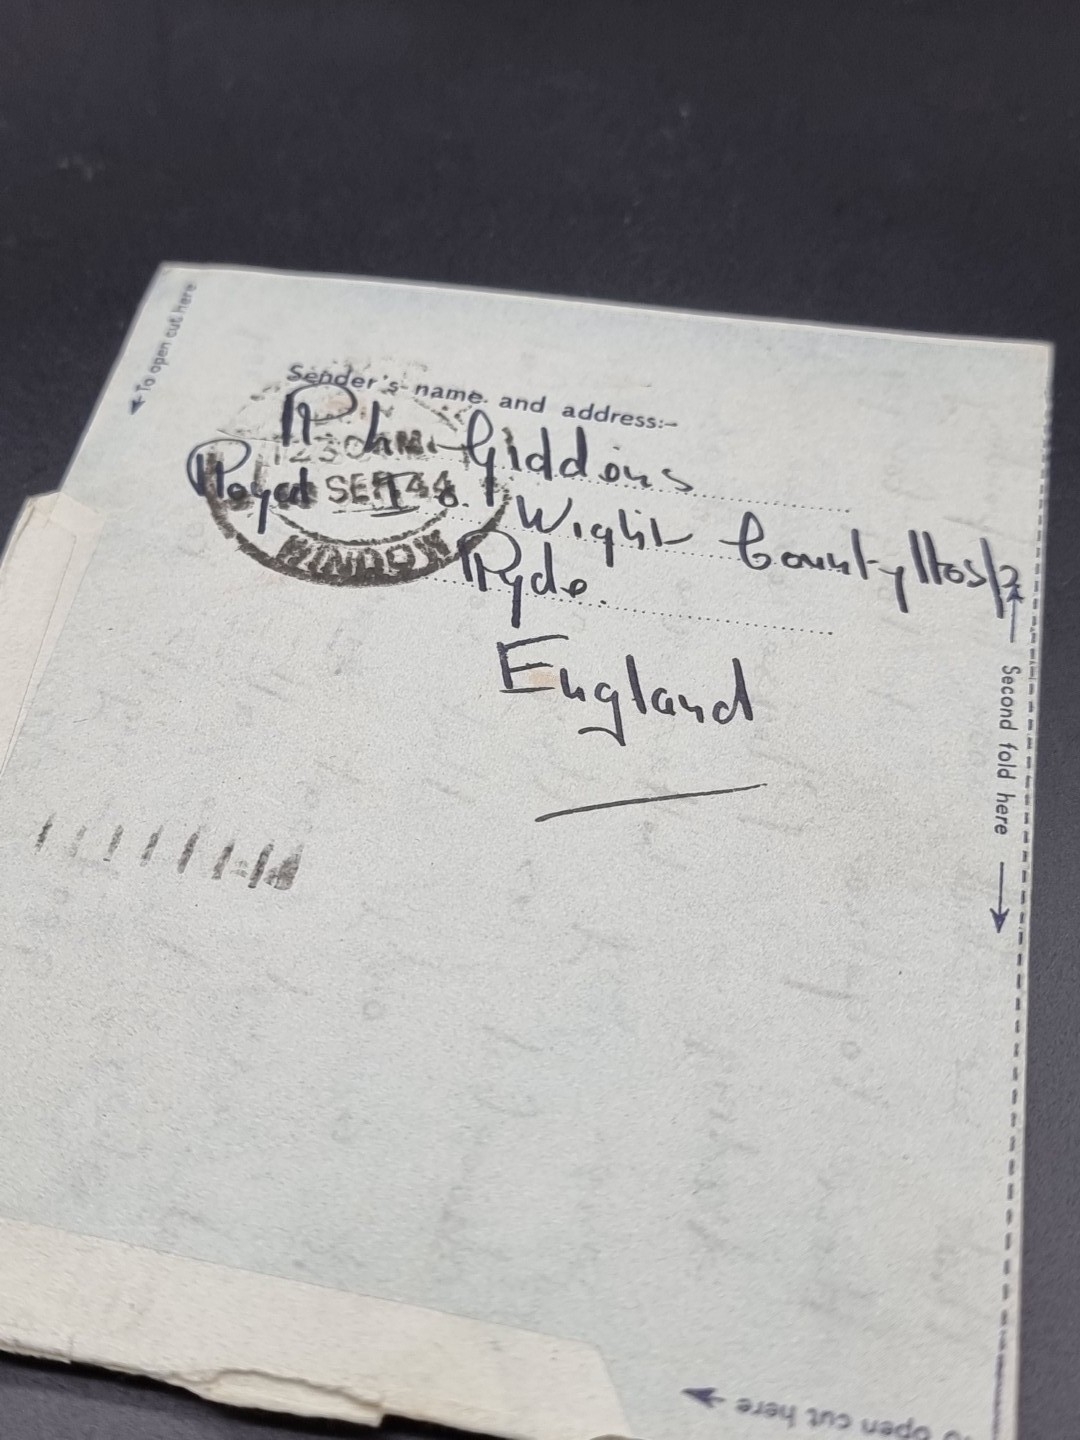 To open cut here
Sender's name and address:-
R. L. Giddons
Royal I. o. Wight County Hosp
Ryde.
England
1230AM
SEP 44
Second fold here
To open cut here